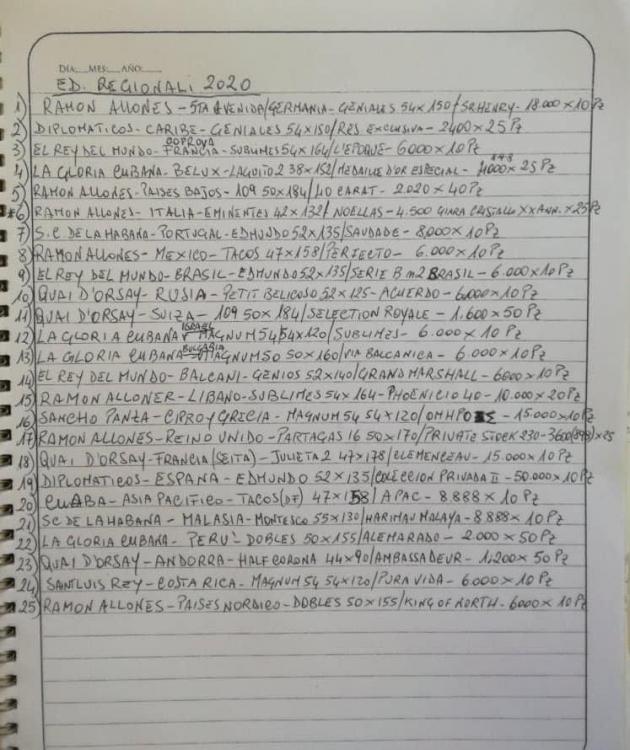 DIA:___MES:___AÑO:____
ED. REGIONALI 2020
1) RAMON ALLONES - 5TA AVENIDA/GERMANIA - GENIALES 54x150/SR HENRY - 18.000 x 10 Pz
2) DIPLOMATICOS - CARIBE - GENIALES 54x150/RES. EXCLUSIVA - 2400 x 25 Pz
3) EL REY DEL MUNDO - FRANCIA - SUBLIMES 54x164/L'EPOQUE - 6000 x 10 Pz
4) LA GLORIA CUBANA - BELUX - LAGUITO 2 38x152/MEDAILLE D'OR ESPECIAL - x 25 Pz
5) RAMON ALLONES - PAISES BAJOS - 109 50x184/40 CARAT - 2.020 x 40 Pz
*6) RAMON ALLONES - ITALIA - EMINENTES 42x132/NOELLAS - 4.500 GIARA CRISTALLO XX ANN. x 25 Pz
7) S.C DE LA HABANA - PORTUGAL - EDMUNDO 52x135/SAUDADE - 8,000 x 10 Pz
8) RAMON ALLONES - MEXICO - TACOS 47x158/PERFECTO - 6.000 x 10 Pz
9) EL REY DEL MUNDO - BRASIL - EDMUNDO 52x135/SERIE B m2 BRASIL - 6.000 x 10 Pz
10) QUAI D'ORSAY - RUSIA - PETIT BELICOSO 52x125 - ACUERDO - 6,000 x 10 Pz
11) QUAI D'ORSAY - SUIZA - 109 50x184/SELECTION ROYALE - 1.600 x 50 Pz
12) LA GLORIA CUBANA ISRAEL MAGNUM 54 54x120/SUBLIMES - 6.000 x 10 Pz
13) LA GLORIA CUBANA BULGARIA MAGNUM 50 50x160/VIA BALCANICA - 6.000 x 10 Pz
14) EL REY DEL MUNDO - BALCANI - GENIOS 52x140/GRAND MARSHALL - 6000 x 10 Pz
15) RAMON ALLONER - LIBANO - SUBLIMES 54x164 - PHOENICIO 40 - 10.000 x 20 Pz
16) SANCHO PANZA - CIPRO y GRECIA - MAGNUM 54 54x120/OMHPOΣ - 15.000 x 10 Pz
17) RAMON ALLONES - REINO UNIDO - PARTAGAS 16 50x170/PRIVATE STOCK 230 - 3600(898) x 25
18) QUAI D'ORSAY - FRANCIA (SEITA) - JULIETA 2 47x178/CLEMENCEAU - 15.000 x 10 Pz
19) DIPLOMATICOS - ESPANA - EDMUNDO 52x135/COLECCION PRIVADA II - 50.000 x 10 Pz
20) CUABA - ASIA PACIFICO - TACOS (DF) 47x158/APAC - 8.888 x 10 Pz
21) SC DE LA HABANA - MALASIA - MONTESCO 55x130/HARIMAU MALAYA - 8.888 x 10 Pz
22) LA GLORIA CUBANA - PERU' - DOBLES 50x155/ALEMARADO - 2.000 x 50 Pz
23) QUAI D'ORSAY - ANDORRA - HALF CORONA 44x90/AMBASSADEUR - 1,200 x 50 Pz
24) SAN LUIS REY - COSTA RICA - MAGNUM 54 54x120/PURA VIDA - 6.000 x 10 Pz
25) RAMON ALLONES - PAISES NORDICO - DOBLES 50x155/KING OF NORTH - 6000 x 10 Pz